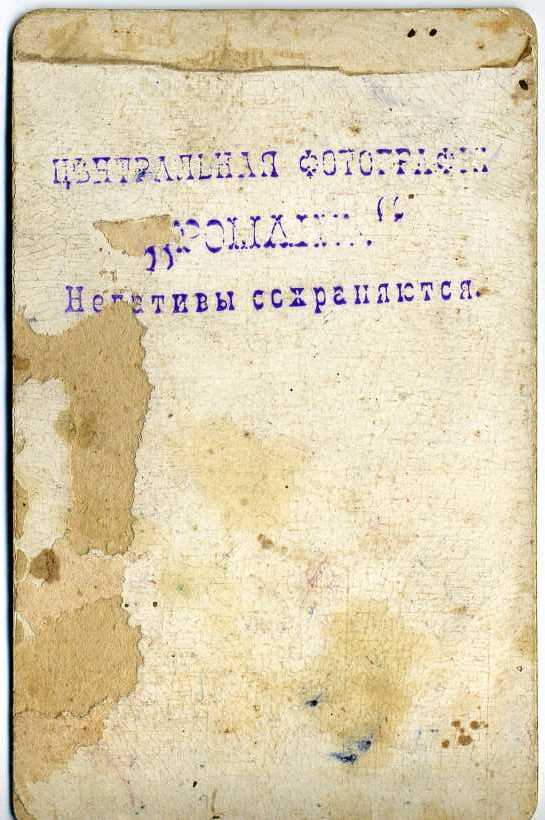 ЦЕНТРАЛЬНАЯ ФОТОГРАФІЯ
Негативы сохраняются.